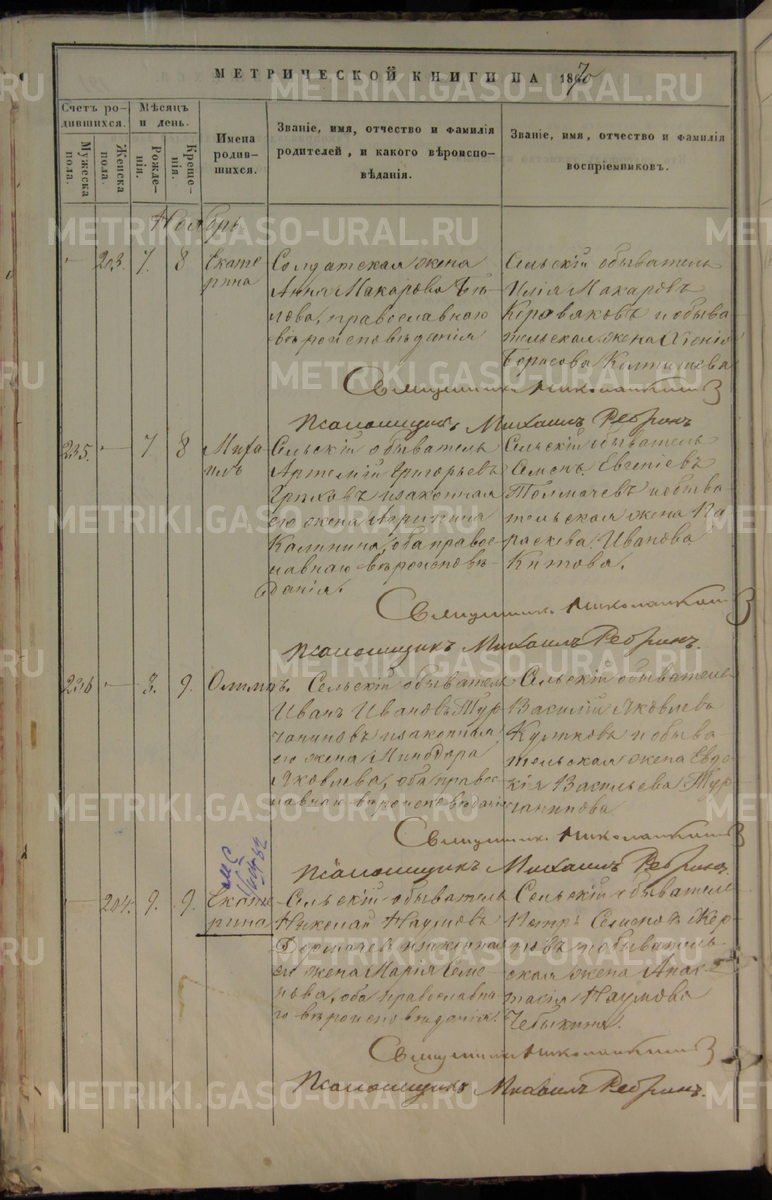 МЕТРИЧЕСКОЙ КНИГИ НА 1870
Счетъ ро-
дившихся.
Мужеска
пола.
Женска
пола.
Мѣсяцъ
и день.
Рожде-
нія.
Креще-
нія.
Имена
родив-
шихся.
Званіе, имя, отчество и фамилія
родителей, и какого вѣроиспо-
вѣданія.
Званіе, имя, отчество и фамилія
воспріемниковъ.
Ноябрь
203. 7. 8 Екате
рина
Солдатская жена
Анна Макарова
православнаго
вѣроисповѣданія
Сельскій обыватель
Илія Макаровъ
и обыва
тельская жена Ксенія
Священникъ
Псаломщикъ Михаилъ Ребринъ
235. 7 8 Миха
илъ
Сельскій обыватель
Артемій Григорьевъ
и законная
его жена
Калинина, оба право
славнаго вѣроисповѣ
данія.
Сельскій обыватель
Семенъ Евгеніевъ
Толмачевъ и обыва
тельская жена Па
раскева Иванова
Китова.
Священникъ
Псаломщикъ Михаилъ Ребринъ.
236 3. 9. Олимпъ.
Сельскій обыватель
Иванъ Ивановъ Тур
чаниновъ и законная
его жена Минодора
Яковлева, оба право
славнаго вѣроисповѣданія
Сельскій обыватель
Василій Яковлевъ
Куликовъ и обыва
тельская жена Евдо
кія Васильева Тур
чанинова
Священникъ
Псаломщикъ Михаилъ Ребринъ.
204. 9. 9. Екате
рина
Сельскій обыватель
Николай Наумовъ
и законная
его жена Марія Семе
нова, оба православна
го вѣроисповѣданія.
Сельскій обыватель
Петръ Семеновъ
и обыватель
ская жена Анас
тасія Наумова
Чебыкина.
Священникъ
Псаломщикъ Михаилъ Ребринъ.
METRIKI.GASO-URAL.RU